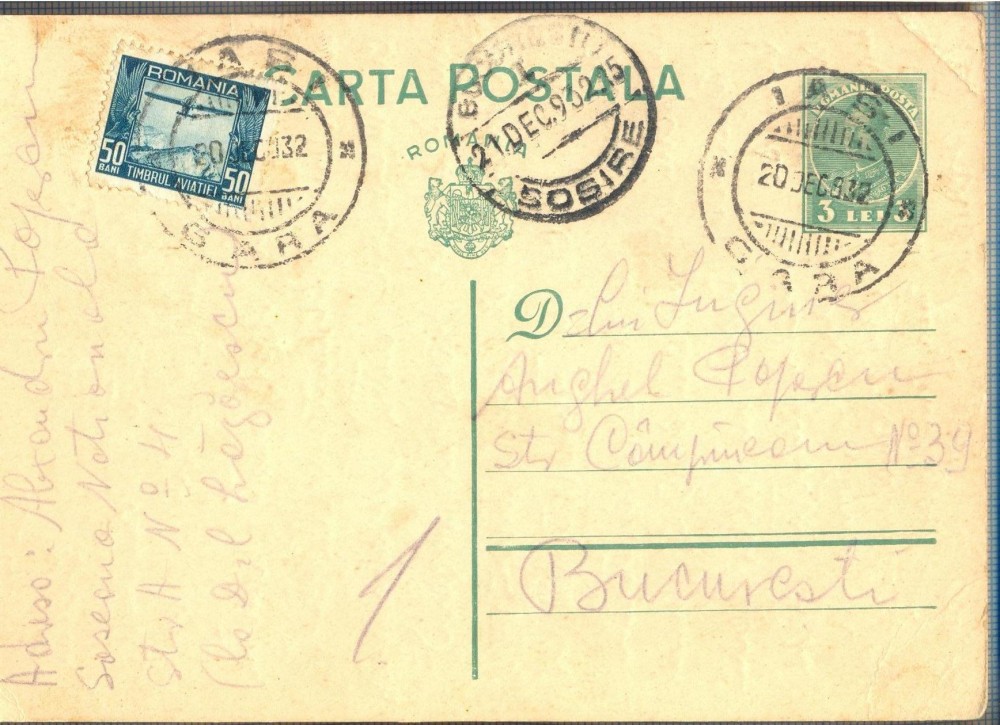 CARTA POSTALA
ROMANIA
ROMANIA
50 BANI TIMBRUL AVIATIEI 50 BANI
IAȘI
20 DEC 932
GARA
21 DEC. 932 15
SOSIRE
IAȘI
20 DEC 932
GARA
ROMANIA POSTA
3 LEI 3
D-lui Inginer
Anghel Popescu
Str Câmpineanu No 39
București
1
Adresa: Alexandru Popescu
Soseaua Națională
Str A No 4